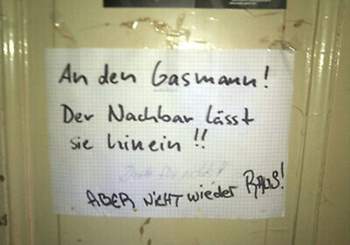 An den Gasmann!
Der Nachbar lässt
sie hinein!!
ABER NICHT wieder RAUS!